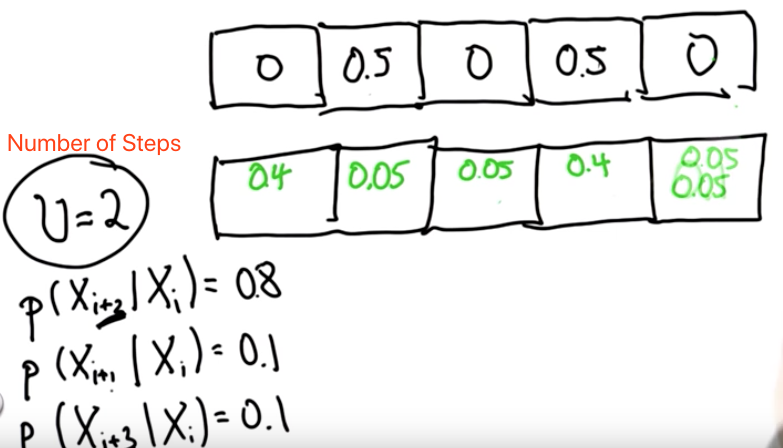 0 0.5 0 0.5 0
Number of Steps
0.4 0.05 0.05 0.4 0.05
0.05
U=2
p(Xi+2|Xi)=0.8
p(Xi+1|Xi)=0.1
p(Xi+3|Xi)=0.1